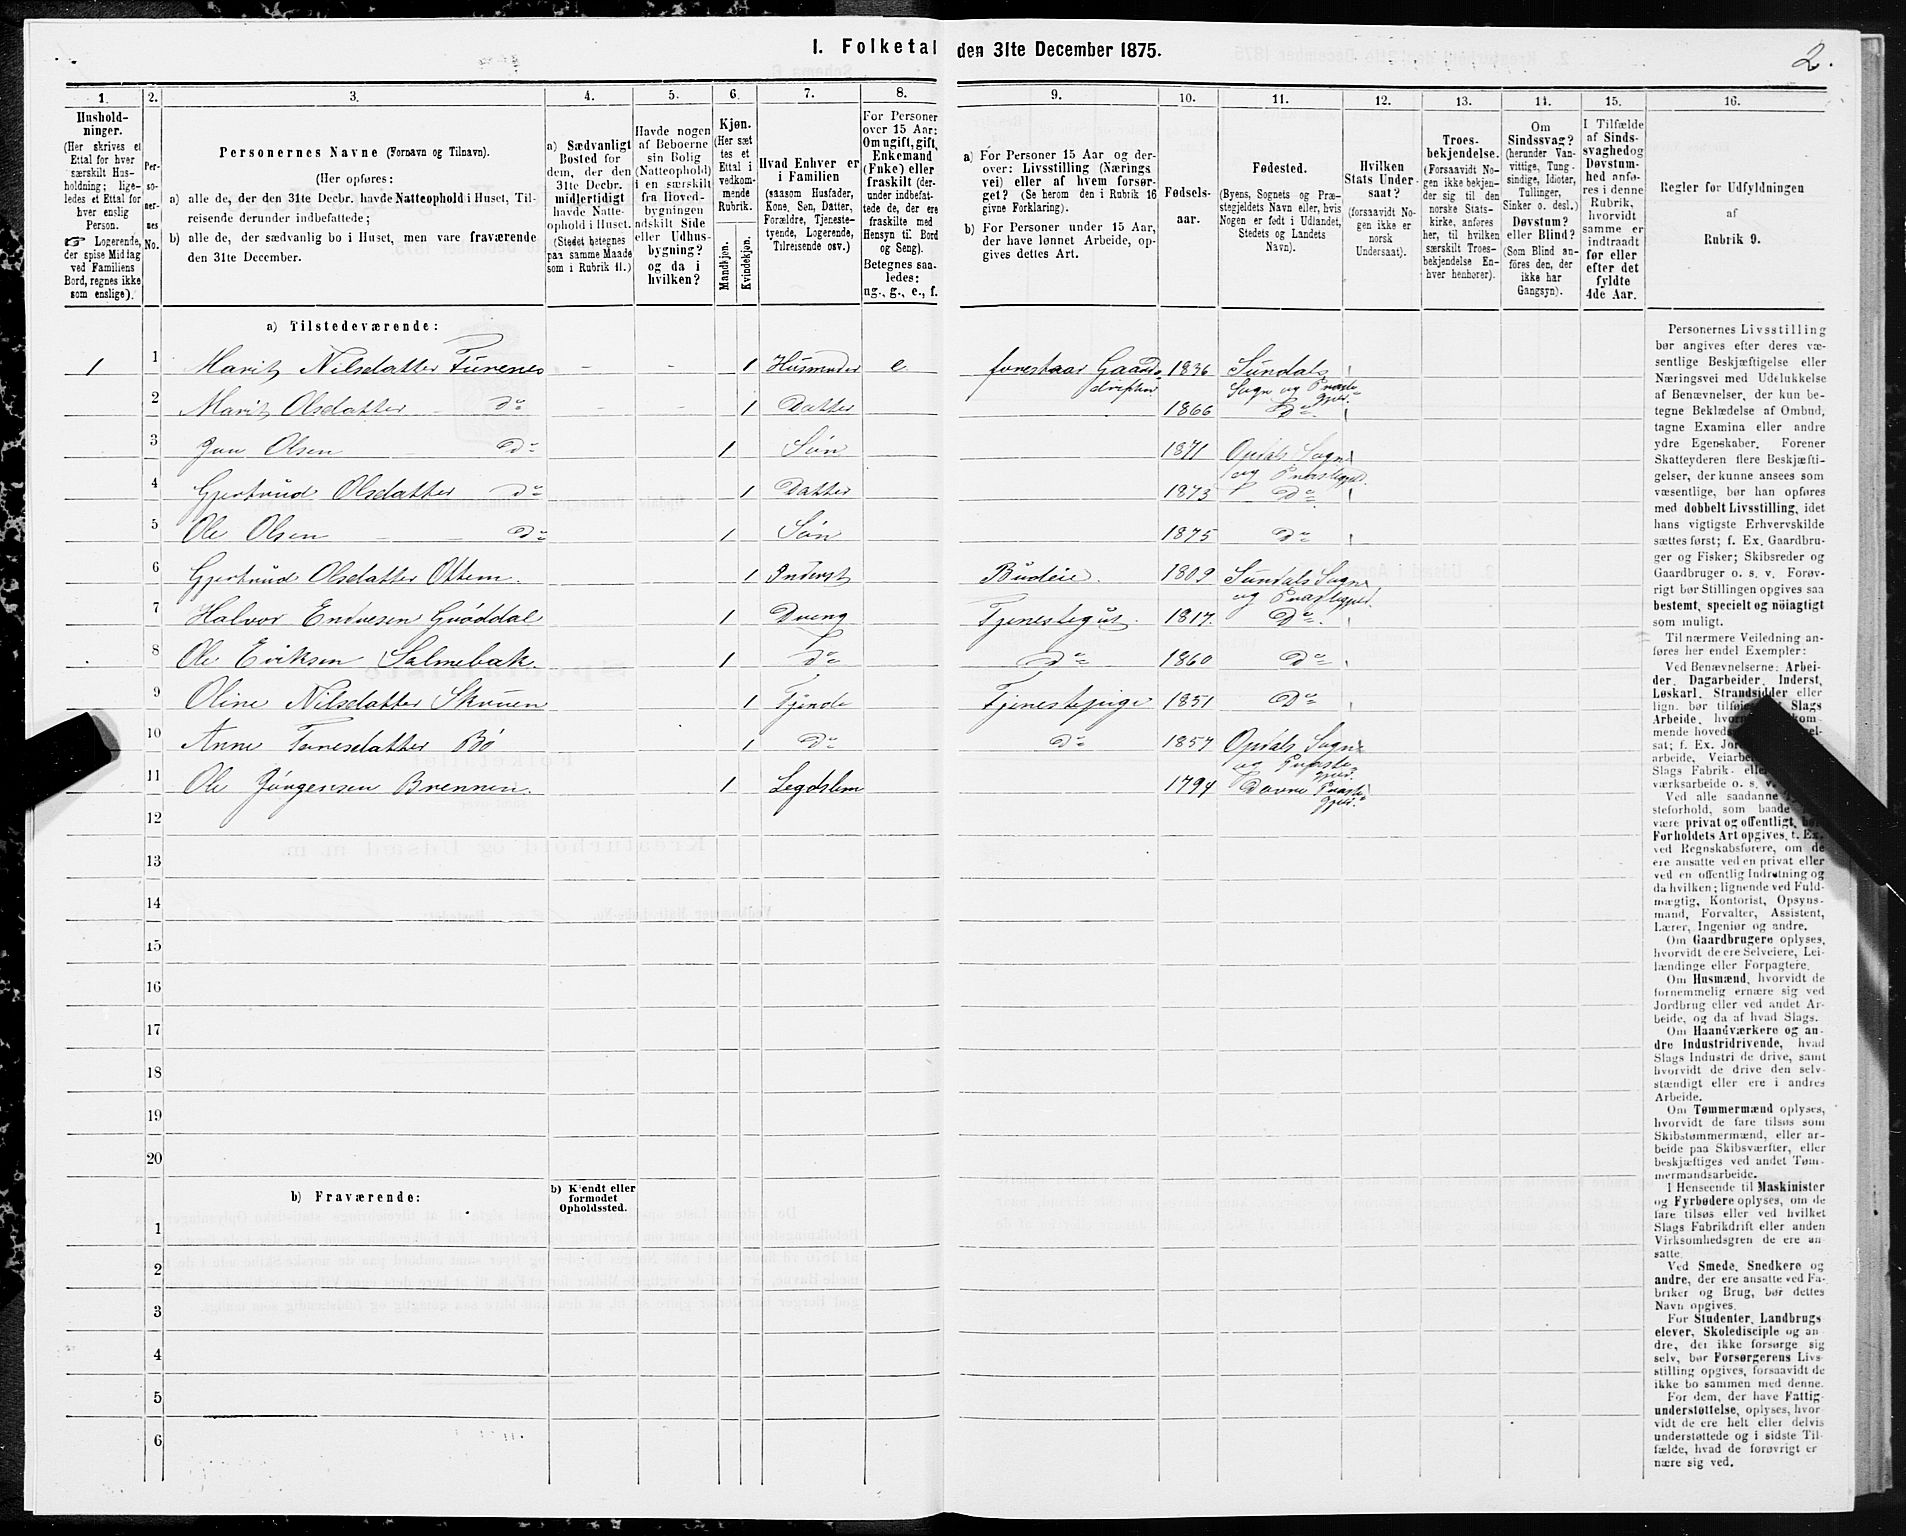 I. Folketal den 31te December 1875.
2.
1. 2. 3. 4. 5. 6. 7. 8. 9. 10. 11. 12. 13. 14. 15. 16.
Hushold-
ninger.
(Her skrives et
Ettal for hver
særskilt Hus-
holdning; lige-
ledes et Ettal for
hver enslig
Person.
☞ Logerende,
der spise Middag
ved Familiens
Bord, regnes ikke
som enslige).
Per-
so-
ner-
nes
No.
Personernes Navne (Fornavn og Tilnavn).
(Her opføres:
a) alle de, der den 31te Decbr. havde Natteophold i Huset, Til-
reisende derunder indbefattede;
b) alle de, der sædvanlig bo i Huset, men vare fraværende
den 31te December.
a) Sædvanligt
Bosted for
dem, der den
31te Decbr.
midlertidigt
havde Natte-
ophold i Huset.
(Stedet betegnes
paa samme Maade
som i Rubrik 11.)
Havde nogen
af Beboerne
sin Bolig
(Natteophold)
i en særskilt
fra Hoved-
bygningen
adskilt Side
eller Udhus-
bygning?
og da i
hvilken?
Kjøn.
(Her sæt
tes et
Ettal i
vedkom-
mende
Rubrik.
Mandkjøn.
Kvindekjøn.
Hvad Enhver er
i Familien
(saasom Husfader,
Kone, Søn, Datter,
Forældre, Tjeneste-
tyende, Logerende,
Tilreisende osv.)
For Personer
over 15 Aar:
Om ugift, gift,
Enkemand
(Enke) eller
fraskilt (der-
under indbefat-
tede de, der ere
fraskilte med
Hensyn til Bord
og Seng).
Betegnes saa-
ledes:
ug., g., e., f.
a) For Personer 15 Aar og der-
over: Livsstilling (Nærings
vei) eller af hvem forsør-
get? (Se herom den i Rubrik 16
givne Forklaring).
b) For Personer under 15 Aar,
der have lønnet Arbeide, op-
gives dettes Art.
Fødsels-
aar.
Fødested.
(Byens, Sognets og Præ-
stegjeldets Navn eller, hvis
Nogen er født i Udlandet,
Stedets og Landets
Navn).
Hvilken
Stats Under-
saat?
(forsaavidt No-
gen ikke er
norsk
Undersaat).
Troes-
bekjendelse.
(Forsaavidt No-
gen ikke bekjen-
der sig til den
norske Stats-
kirke, anføres
her, til hvilken
særskilt Troes-
bekjendelse En-
hver henhører).
Om
Sindssvag?
(herunder Van-
vittige, Tung-
sindige, Idioter,
Tullinger,
Sinker o. desl.)
Døvstum?
eller Blind?
(Som Blind an-
føres den, der
ikke har
Gangsyn).
I Tilfælde
af Sinds-
svaghed og
Døvstum-
hed anfø-
res i denne
Rubrik,
hvorvidt
samme er
indtraadt
før eller
efter det
fyldte
4de Aar.
Regler for Udfyldningen
af
Rubrik 9.
a) Tilstedeværende:
1 1 Marit Nilsdatter Furenes - - 1 Husmoder e. forestaar Gaards 1836 Sundals
driften Sogn og Præste
gjeld
2 Marit Olsdatter Do - - 1 Datter 1866 Do
3 Jon Olsen Do 1 Søn 1871 Opdals Sogn
og Præstegjeld.
4 Gjertrud Olsdatter Do 1 Datter 1873 Do
5 Ole Olsen Do 1 Søn 1875 Do
6 Gjertrud Olsdatter Ottem. 1 Inderst Budeie. 1809 Sundals Sogn
og Præstegjeld.
7 Halvor Endresen Grøddal 1 Dreng Tjenestegut. 1817. Do
8 Ole Eriksen Salmebæk. 1 Do Do 1860 Do
9 Oline Nilsdatter Skruen 1 Tjende Tjenestepige 1851 Do
10 Anne Toresdatter Bø 1 Do Do 1857 Opdals Sogn
og Præste
gjeld.
11 Ole Jørgensen Brennen. 1 Legdslem 1794 Dovre Præste
gjeld.
12
13
14
15
16
17
18
19
20
b) Fraværende:
b) Kjendt eller
formodet
Opholdssted.
1
2
3
4
5
6
Personernes Livsstilling
bør angives efter deres væ-
sentlige Beskjæftigelse eller
Næringsvei med Udelukkelse
af Benævnelser, der kun be-
tegne Beklædelse af Ombud,
tagne Examina eller andre
ydre Egenskaber. Forener
Skatteyderen flere Beskjæfti-
gelser, der kunne ansees som
væsentlige, bør han opføres
med dobbelt Livsstilling, idet
hans vigtigste Erhvervskilde
sættes først; f. Ex. Gaardbru-
ger og Fisker; Skibsreder og
Gaardbruger o. s. v. Forøv-
rigt bør Stillingen opgives saa
bestemt, specielt og nøiagtigt
som muligt.
Til nærmere Veiledning an-
føres her endel Exempler:
Ved Benævnelserne: Arbei-
der, Dagarbeider, Inderst,
Løskarl, Strandsidder eller
lign. bør tilføies Slags
Arbeide,
mende hoveds
sat; f. Ex.
arbeide, Veiarbe
Slags Fabrik- elle
værksarbeide o. s. v.
Ved alle saadanne
steforhold, som baade
være privat og offentligt, bør
Forholdets Art opgives, t. Ex.
ved Regnskabsførere, om de
ere ansatte ved en privat eller
ved en offentlig Indretning og
da hvilken; lignende ved Fuld-
mægtig, Kontorist, Opsyns-
mand, Forvalter, Assistent,
Lærer, Ingeniør og andre.
Om Gaardbrugere oplyses,
hvorvidt de ere Selveiere, Lei-
lændinge eller Forpagtere.
Om Husmænd, hvorvidt de
fornemmelig ernære sig ved
Jordbrug eller ved andet Ar-
beide, og da af hvad Slags.
Om Haandværkere og an-
dre Industridrivende, hvad
Slags Industri de drive, samt
hvorvidt de drive den selv-
stændigt eller ere i andres
Arbeide.
Om Tømmermænd oplyses,
hvorvidt de fare tilsøs som
Skibstømmermænd, eller ar-
beide paa Skibsværfter, eller
beskjæftiges ved andet Tøm-
mermandsarbeide.
I Henseende til Maskinister
og Fyrbødere oplyses, om de
fare tilsøs eller ved hvilket
Slags Fabrikdrift eller anden
Virksomhedsgren de ere an-
satte.
Ved Smede, Snedkere og
andre, der ere ansatte ved Fa-
briker og Brug, bør dettes
Navn opgives.
For Studenter, Landbrugs
elever, Skoledisciple og an-
dre, der ikke forsørge sig
selv, bør Forsørgerens Livs-
stilling opgives, forsaavidt de
ikke bo sammen med denne.
For dem, der have Fattig-
understøttelse, oplyses, hvor-
vidt de ere helt eller delvis
understøttede og i sidste Til-
fælde, hvad de forøvrigt er
nære sig ved.